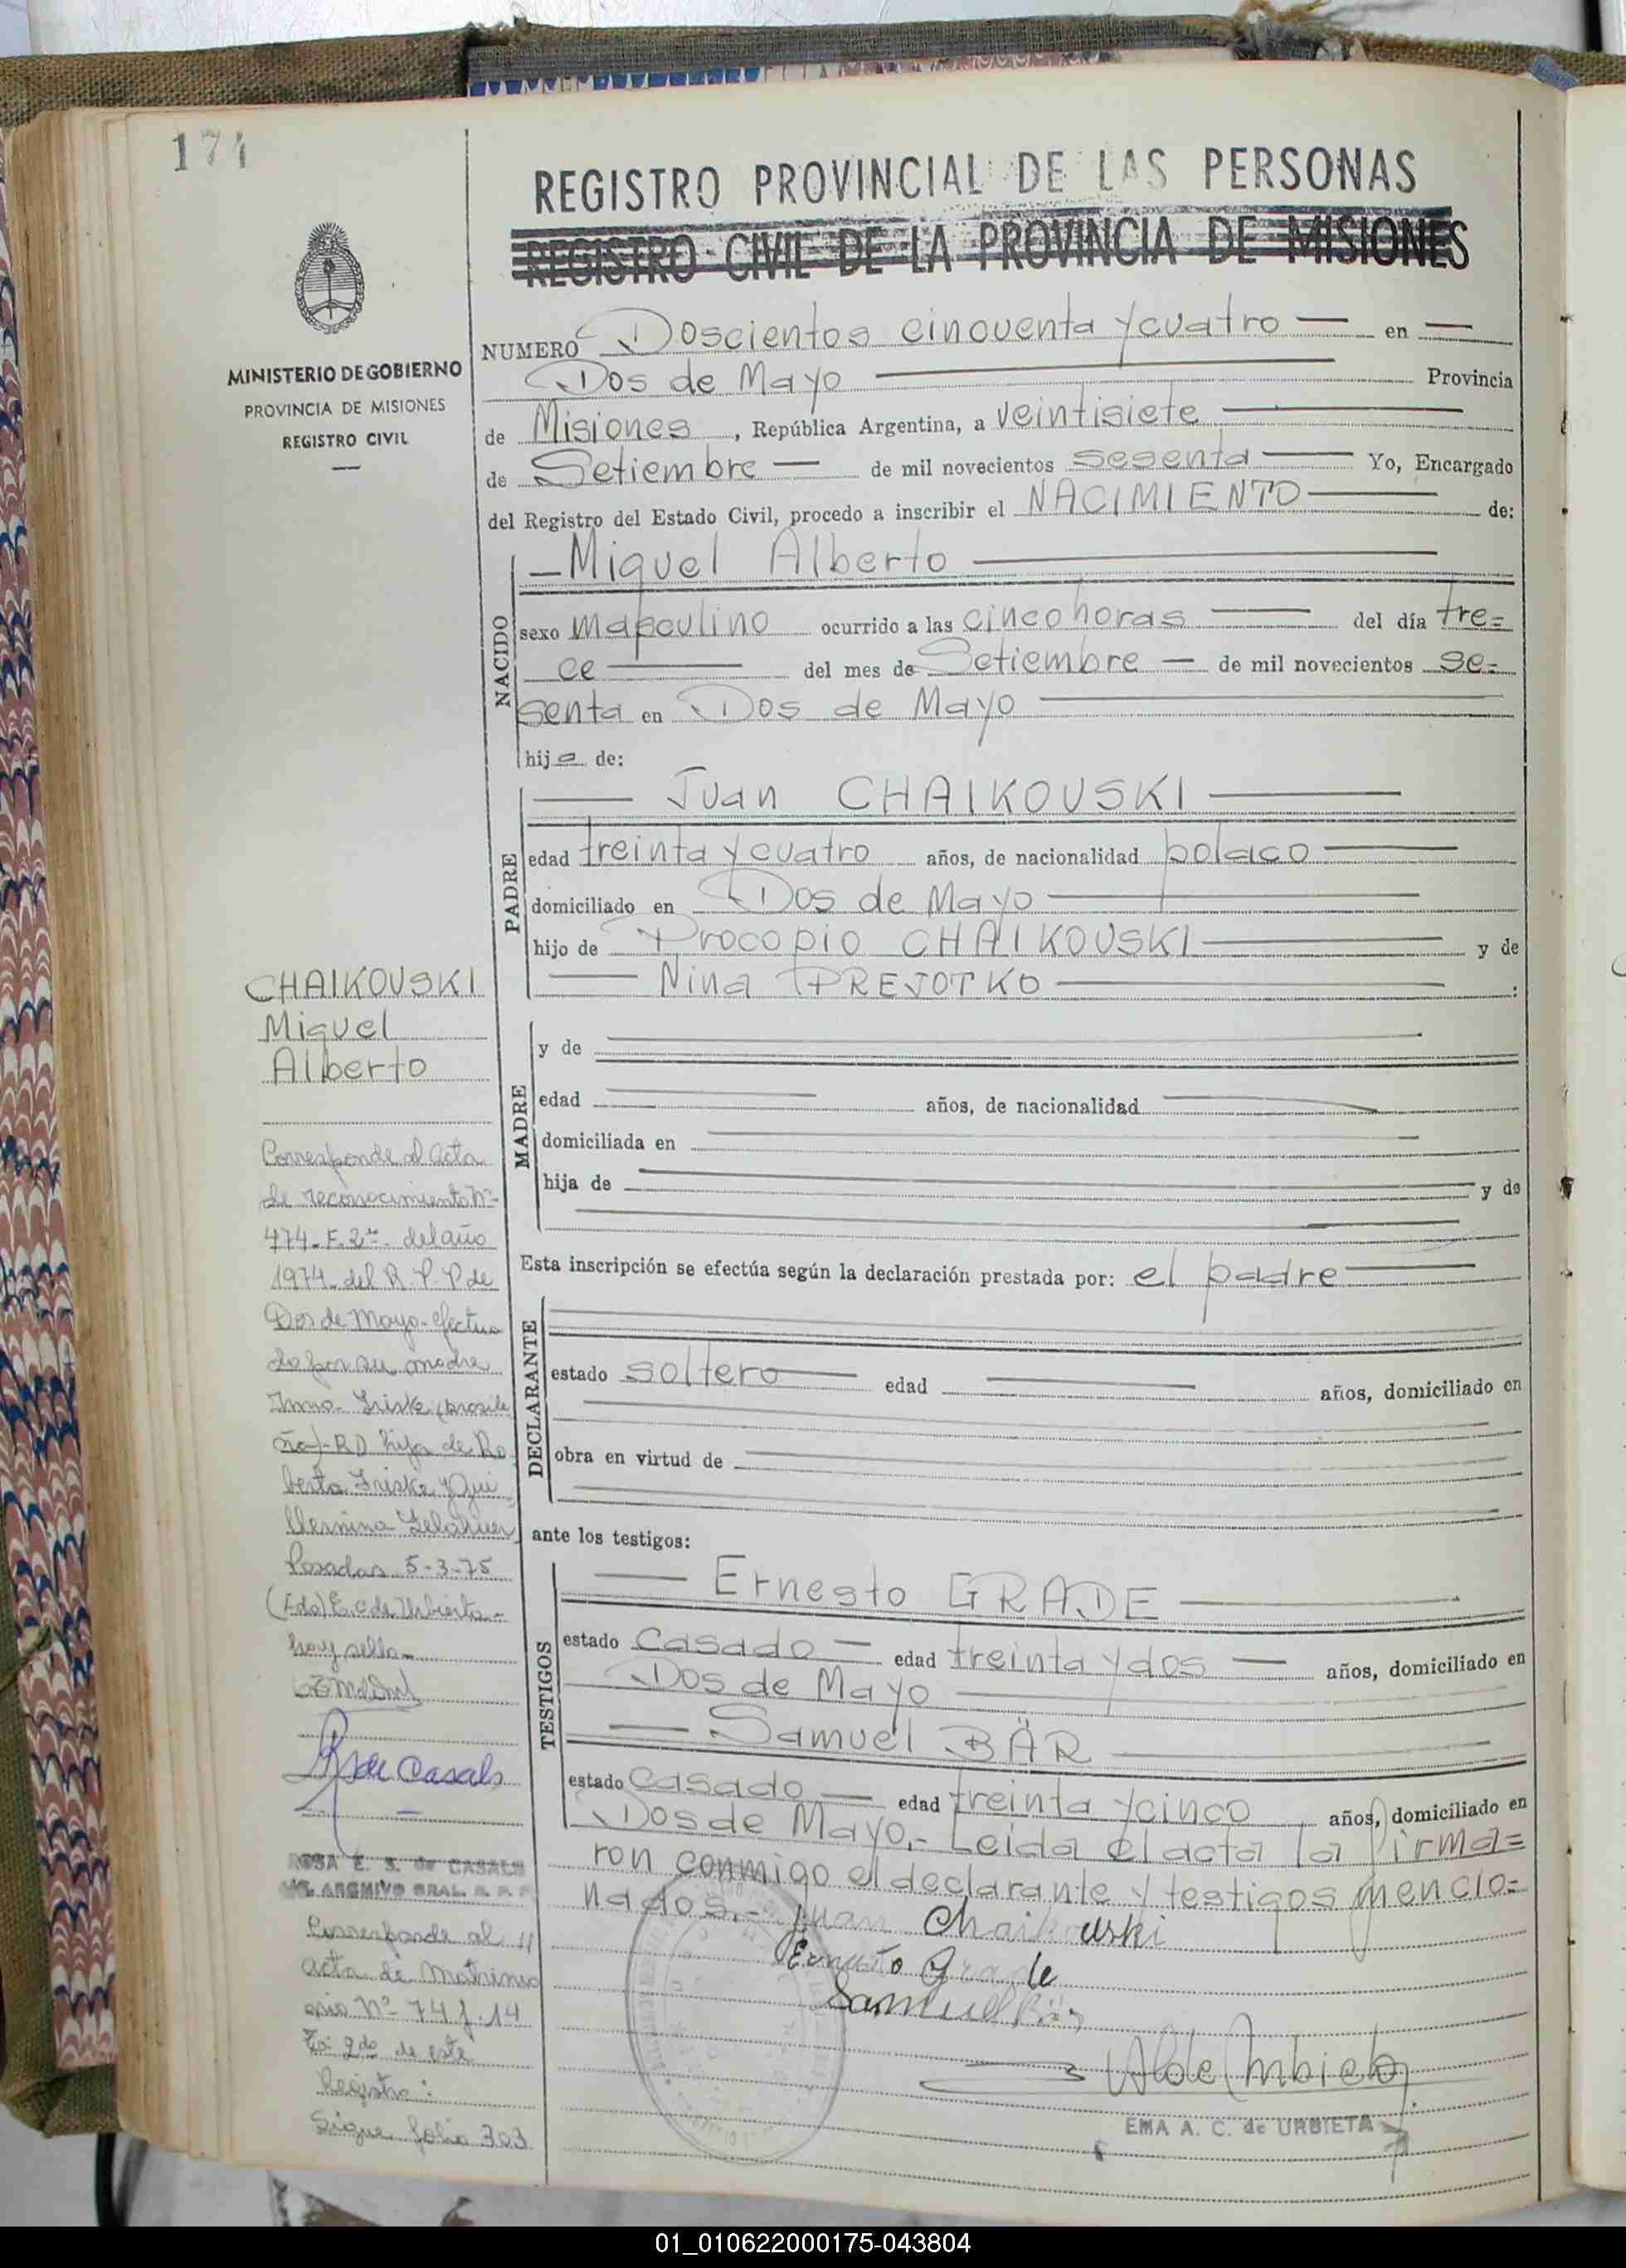 174
REGISTRO PROVINCIAL DE LAS PERSONAS
REGISTRO CIVIL DE LA PROVINCIA DE MISIONES
MINISTERIO DE GOBIERNO
PROVINCIA DE MISIONES
REGISTRO CIVIL
NUMERO Doscientos cincuenta y cuatro — en —
Dos de Mayo — Provincia
de Misiones, República Argentina, a veintisiete —
de Setiembre — de mil novecientos sesenta — Yo, Encargado
del Registro del Estado Civil, procedo a inscribir el NACIMIENTO — de:
NACIDO
— Miguel Alberto —
sexo masculino ocurrido a las cinco horas — del día tre=
ce — del mes de Setiembre — de mil novecientos se=
senta en Dos de Mayo —
hijo de:
PADRE
— Juan CHAIKOUSKI —
edad treinta y cuatro años, de nacionalidad polaco —
domiciliado en Dos de Mayo —
hijo de Procopio CHAIKOUSKI — y de
— Nina PREJOTKO — :
MADRE
y de —
edad — años, de nacionalidad —
domiciliada en —
hija de — y de
Esta inscripción se efectúa según la declaración prestada por: el padre —
DECLARANTE
estado soltero — edad — años, domiciliado en
obra en virtud de —
ante los testigos:
TESTIGOS
— Ernesto GRADE —
estado casado — edad treinta y dos — años, domiciliado en
Dos de Mayo —
— Samuel BÄR —
estado casado — edad treinta y cinco años, domiciliado en
Dos de Mayo.- Leida el acta la firma=
ron conmigo el declarante y testigos mencio=
nados.- Juan Chaikouski
Ernesto Grade
Samuel Bär
EMA A. C. de URBIETA
CHAIKOUSKI
Miguel
Alberto
Corresponde al acta
de reconocimiento Nº
474- F. 2 del año
1974 del R. P. P de
Dos de Mayo- efectua
do por su madre
Irma Friske (brasile
ña)- RD hija de Ro
berto Friske y Gui
llermina
Posadas 5-3-75
(Fdo) E. C de Urbieta-
hay sello-
R de Casals
ROSA E. S. de CASALS
ARCHIVO GRAL. R. P. P.
Corresponde al
acta de Matrimo
nio Nº 74 f. 14
Tº 2do de este
Registro:
Sigue folio 303
01_010622000175-043804